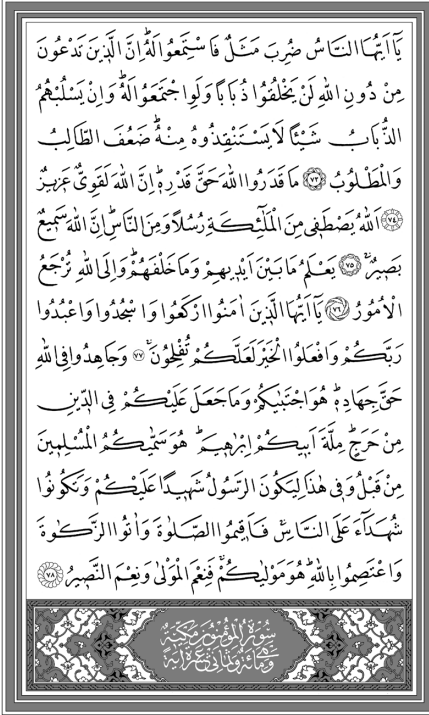 يَٓا اَيُّهَا النَّاسُ ضُرِبَ مَثَلٌ فَاسْتَمِعُوا لَهُۜ اِنَّ الَّذٖينَ تَدْعُونَ
مِنْ دُونِ اللّٰهِ لَنْ يَخْلُقُوا ذُبَابًا وَلَوِ اجْتَمَعُوا لَهُۜ وَاِنْ يَسْلُبْهُمُ
الذُّبَابُ شَيْـًٔا لَا يَسْتَنْقِذُوهُ مِنْهُۜ ضَعُفَ الطَّالِبُ
وَالْمَطْلُوبُ ﴿٧٣﴾ مَا قَدَرُوا اللّٰهَ حَقَّ قَدْرِهٖۜ اِنَّ اللّٰهَ لَقَوِيٌّ عَزٖيزٌ
﴿٧٤﴾ اَللّٰهُ يَصْطَفٖي مِنَ الْمَلٰٓئِكَةِ رُسُلًا وَمِنَ النَّاسِۜ اِنَّ اللّٰهَ سَمٖيعٌ
بَصٖيرٌۚ ﴿٧٥﴾ يَعْلَمُ مَا بَيْنَ اَيْدٖيهِمْ وَمَا خَلْفَهُمْۜ وَاِلَى اللّٰهِ تُرْجَعُ
الْاُمُورُ ﴿٧٦﴾ يَٓا اَيُّهَا الَّذٖينَ اٰمَنُوا ارْكَعُوا وَاسْجُدُوا وَاعْبُدُوا
رَبَّكُمْ وَافْعَلُوا الْخَيْرَ لَعَلَّكُمْ تُفْلِحُونَۚ ﴿٧٧﴾ وَجَاهِدُوا فِي اللّٰهِ
حَقَّ جِهَادِهٖۜ هُوَ اجْتَبٰيكُمْ وَمَا جَعَلَ عَلَيْكُمْ فِي الدّٖينِ
مِنْ حَرَجٍۜ مِلَّةَ اَبٖيكُمْ اِبْرٰهٖيمَۜ هُوَ سَمّٰيكُمُ الْمُسْلِمٖينَ
مِنْ قَبْلُ وَفٖي هٰذَا لِيَكُونَ الرَّسُولُ شَهٖيدًا عَلَيْكُمْ وَتَكُونُوا
شُهَدَٓاءَ عَلَى النَّاسِۚ فَاَقٖيمُوا الصَّلٰوةَ وَاٰتُوا الزَّكٰوةَ
وَاعْتَصِمُوا بِاللّٰهِۜ هُوَ مَوْلٰيكُمْۚ فَنِعْمَ الْمَوْلٰى وَنِعْمَ النَّصٖيرُ ﴿٧٨﴾
سُورَةُ الْمُؤْمِنُونَ مَكِّيَّةٌ
وَهِيَ مِائَةٌ وَثَمَانِيَ عَشْرَةَ اٰيَةً